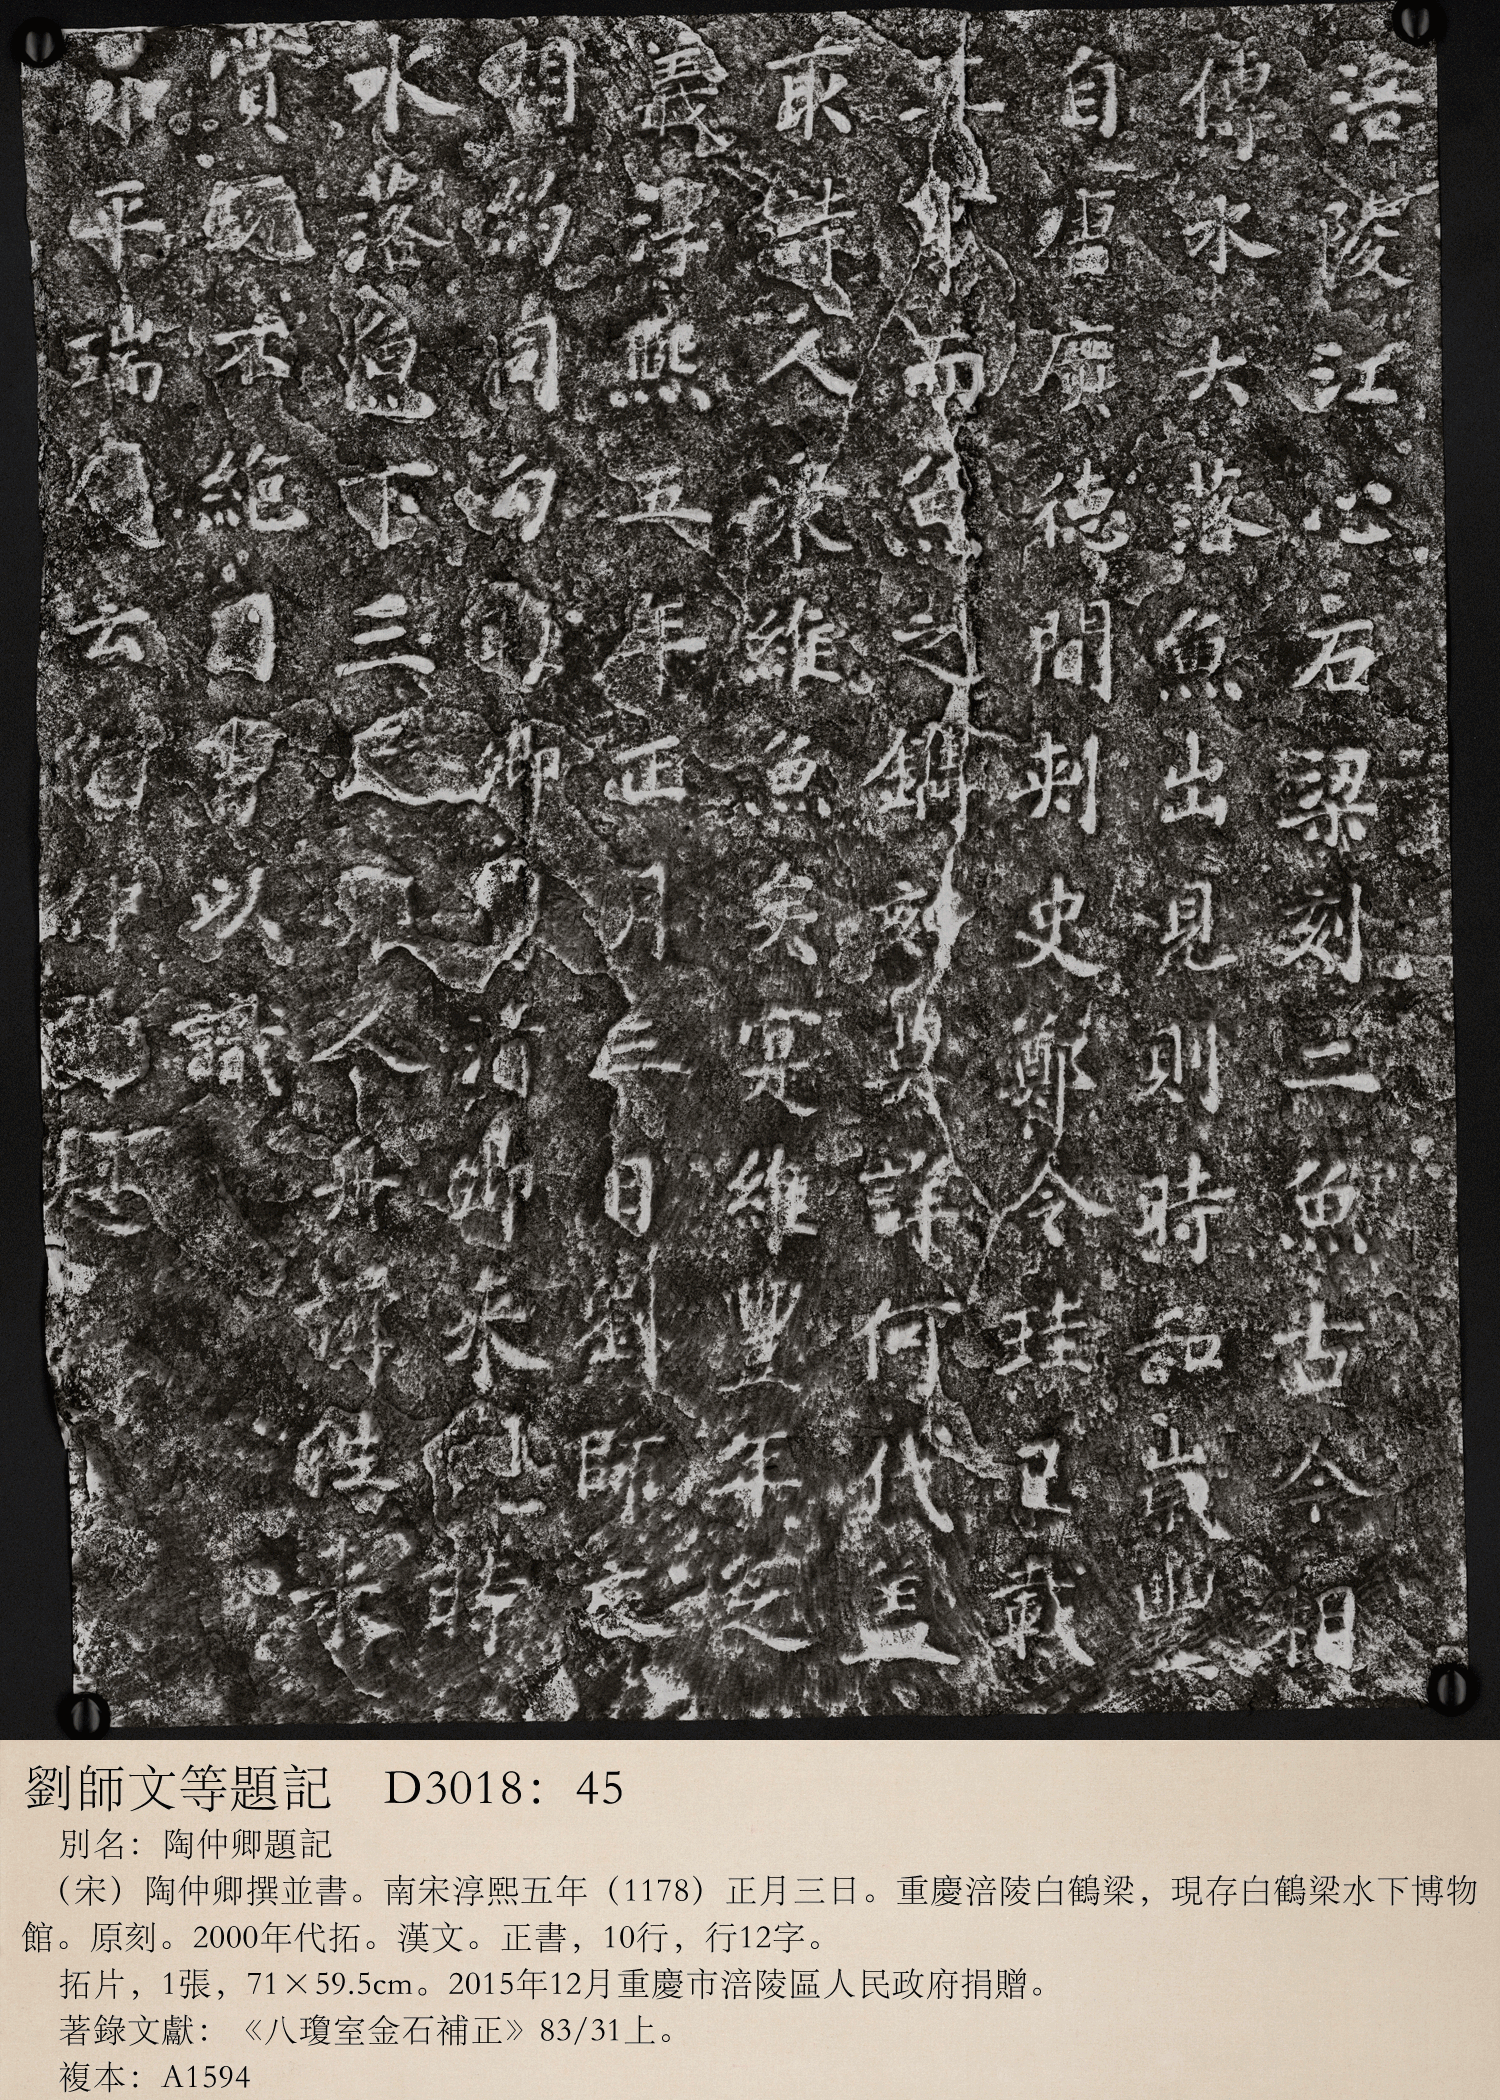 涪陵江心石梁刻二魚古今相
傳水大落魚出見則時和歲豐
自唐廣德間刺史鄭令珪已載
其事而魚之鐫刻莫詳何代蓋
取詩人衆維魚矣寔維豐年之
義淳熙五年正月三日劉師文
相約同勾卿清卿來時
水落魚下三尺人舟往來
賞翫不絕因書以識
升平瑞云
劉師文等題記 D3018：45
別名：陶仲卿題記
（宋）陶仲卿撰並書。南宋淳熙五年（1178）正月三日。重慶涪陵白鶴梁，現存白鶴梁水下博物
館。原刻。2000年代拓。漢文。正書，10行，行12字。
拓片，1張，71×59.5cm。2015年12月重慶市涪陵區人民政府捐贈。
著錄文獻：《八瓊室金石補正》83/31上。
複本：A1594